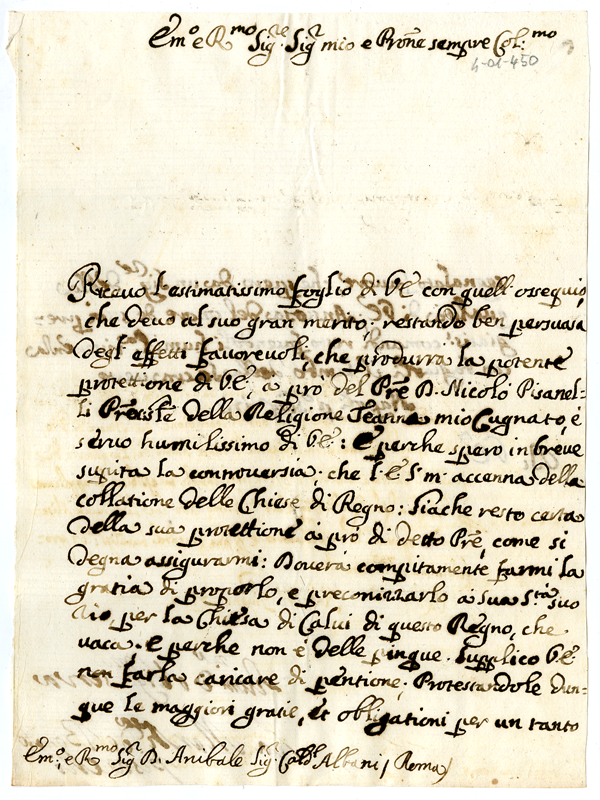 Em.o e R.mo Sig.re Sig.r mio e Pro̅ne sempre Col:mo
4-01-450
Ricevo l'estimatissimo foglio di V.E. con quell'ossequio,
che devo al suo gran merito: restando ben persuasa
degl'effetti favorevoli, che produrrà la potente
protettione di V.E., a pro del Pre̅ D. Nicolò Pisanel-
li della Religione Teatina mio Cugnato, e
servo humilissimo di V.E.: E perche spero in breve
supita la controversia, che l'E.S. m'accenna della
collatione delle Chiese di Regno: siache resto certa
della sua protettione à pro di detto Pre̅, come si
degna assigurarmi: Doverà compitamente farmi la
gratia di proporlo, e preconizzarlo à sua S.tà suo
zio, per la Chiesa di Calvi di questo Regno, che
vaca. E perche non è delle pingue. Supplico V.E.
non farla caricare di pentione; Protestandole dun=
que le maggiori gratie, et obligationi per un tanto
Em.o, e R.mo Sig.r D. Anibale Sig.r Card.l Albani / Roma /